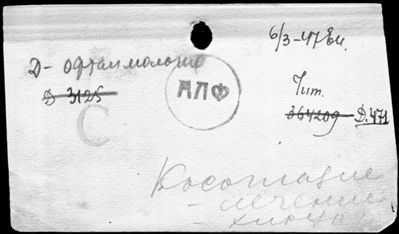 6/3-47 Ен.
Д- офталмология
Д 3125
АПФ
С
Чит.
364209 Д.471
Косоглазие
- лечение
- хирург